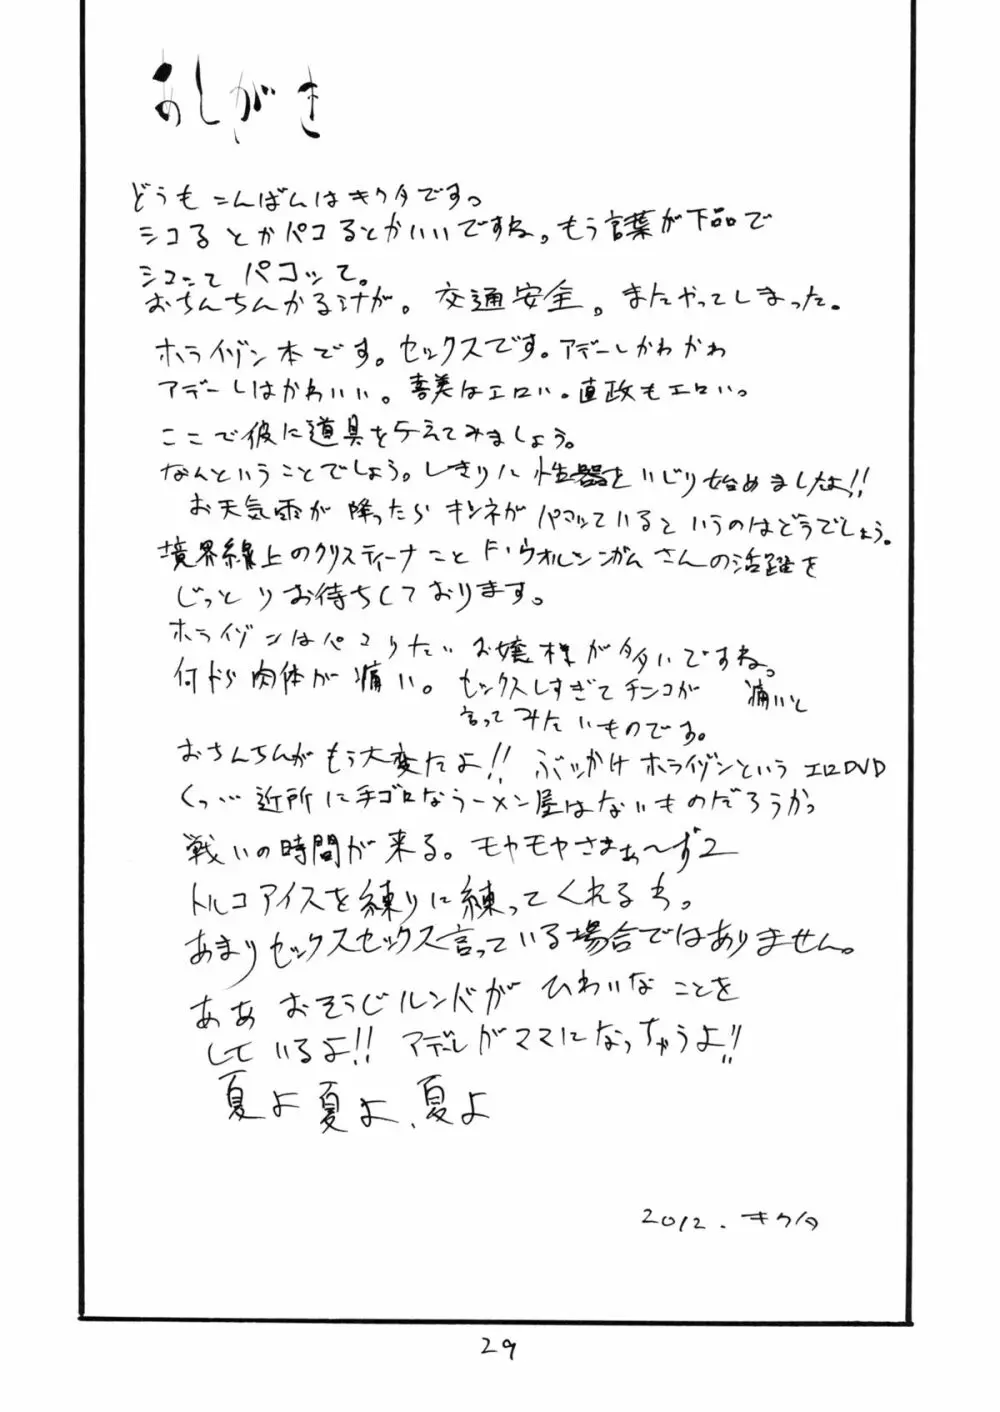 あしがき
どうもこんばんはキクタです。
シコるとかパコるとかいいですね。もう言葉が下品で
シコッて パコッて。
おちんちんかるけが。交通安全。またやってしまった。
ホライゾン本です。セックスです。アデーレかわかわ
アデーレはかわいい。喜美はエロい。直政もエロい。
ここで彼に道具を与えてみましょう。
なんということでしょう。しきりに性器をいじり始めましたよ!!
お天気雨が降ったらキツネがパコッているというのはどうでしょう。
境界線上のクリスティーナことF・ウオルシンガムさんの活躍を
じっとりお待ちしております。
ホライゾンはパコりたいお嬢様が多いですね。
何から肉体が痛い。セックスしすぎてチンコが 痛いと
言ってみたいものです。
おちんちんがもう大変だよ!! ぶっかけホライゾンというエロDVD
くっ… 近所に手ゴロなラーメン屋はないものだろうか。
戦いの時間が来る。モヤモヤさまぁ〜ず2
トルコアイスを練りに練ってくれるわ。
あまりセックスセックス言っている場合ではありません。
ああ おそうじルンバが ひわいなことを
しているよ!! アデーレがママになっちゃうよ!!
夏よ 夏よ、夏よ
2012. キクタ
29